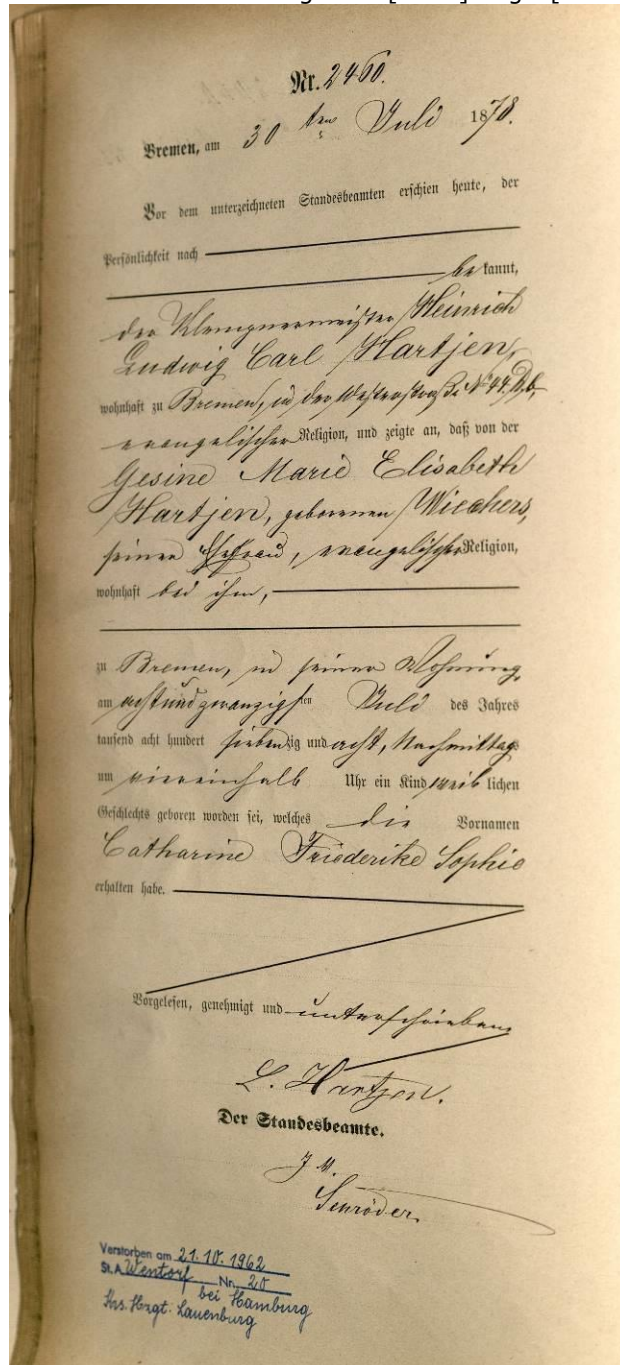 Nr. 2460.
Bremen, am 30 ten Juli 1878.
Vor dem unterzeichneten Standesbeamten erschien heute, der
Persönlichkeit nach
be kannt,
der Klempnermeister Heinrich
Ludwig Carl Hartjen,
wohnhaft zu Bremen, in der Westerstraße No 44.
evangelischer Religion, und zeigte an, daß von der
Gesine Marie Elisabeth
Hartjen, geborenen Wiechers,
seiner Ehefrau, evangelischer Religion,
wohnhaft bei ihm,
zu Bremen, in seiner Wohnung,
am achtundzwanzigsten Juli des Jahres
tausend acht hundert siebenzig und acht, Nachmittags
um viereinhalb Uhr ein Kind weiblichen
Geschlechts geboren worden sei, welches die Vornamen
Catharine Friederike Sophie
erhalten habe.
Vorgelesen, genehmigt und unterschrieben
L. Hartjen.
Der Standesbeamte.
Schröder.
Verstorben am 21.10.1962
St.A. Wentorf Nr. 20
bei Hamburg
Krs. Hzgt. Lauenburg